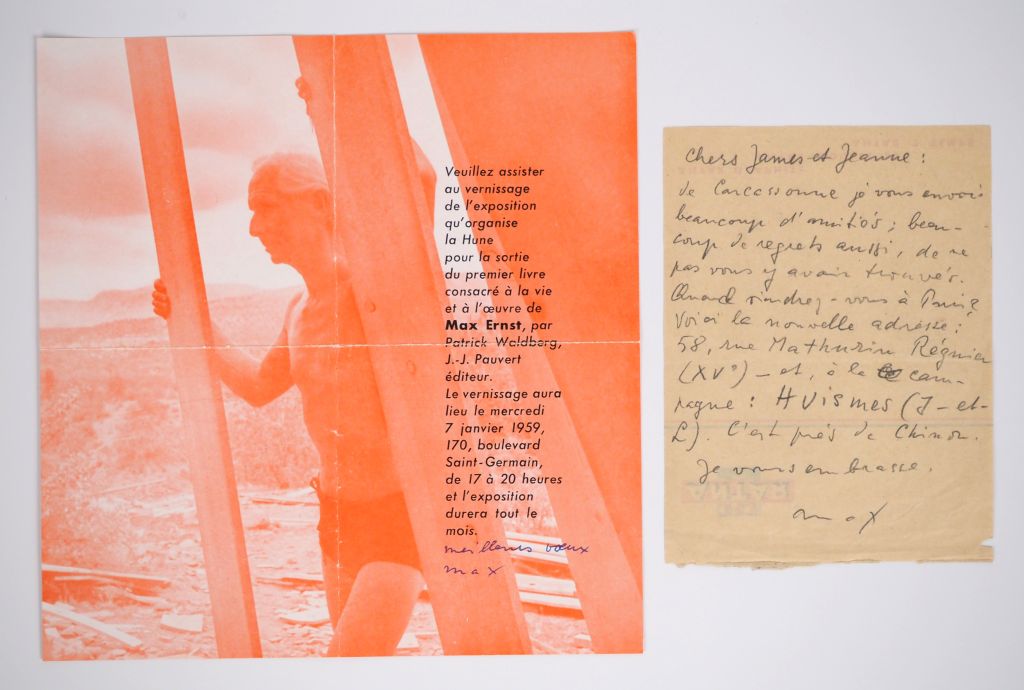 Veuillez assister
au vernissage
de l'exposition
qu'organise
la Hune
pour la sortie
du premier livre
consacré à la vie
et à l'œuvre de
Max Ernst, par
Patrick Waldberg,
J.-J. Pauvert
éditeur.
Le vernissage aura
lieu le mercredi
7 janvier 1959,
170, boulevard
Saint-Germain,
de 17 à 20 heures
et l'exposition
durera tout le
mois.
meilleurs vœux
max
Chers James et Jeanne :
de Carcassonne je vous envoie
beaucoup d'amitiés ; beau-
coup de regrets aussi, de ne
pas vous y avoir trouvés.
Quand viendrez-vous à Paris?
Voici la nouvelle adresse :
58, rue Mathurin Régnier
(XVe) – et, à la cam-
pagne : Huismes (I-et-
L). C'est près de Chinon.
Je vous embrasse.
max